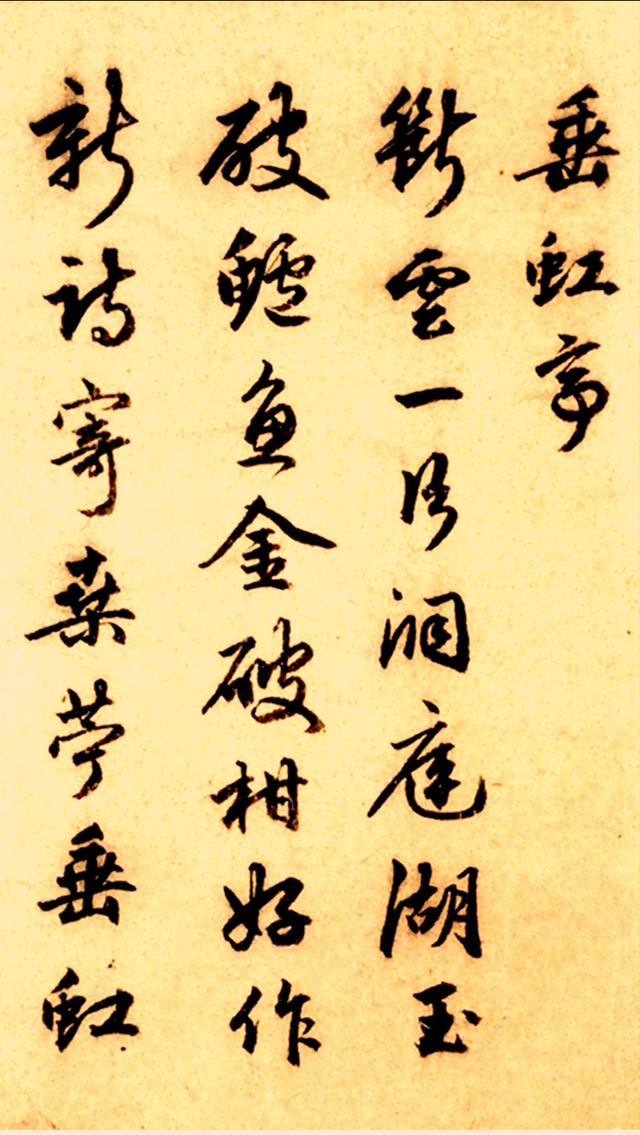 垂虹亭
斷雲一片洞庭湖玉
破鱸魚金破柑好作
新詩寄桑苧垂虹